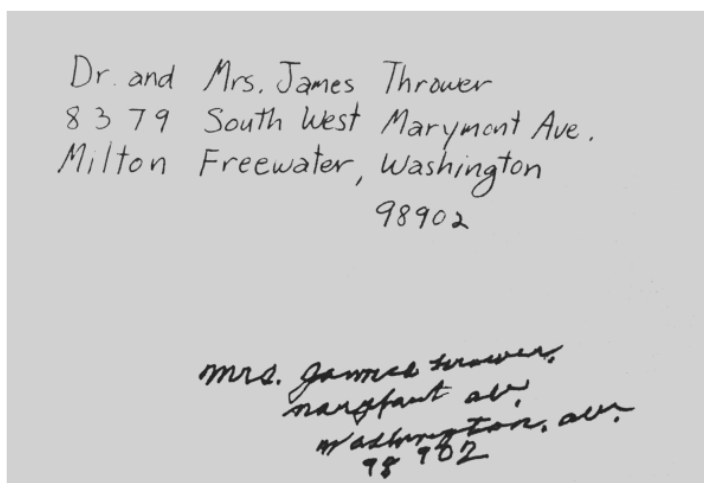 Dr. and Mrs. James Thrower
8379 South West Marymont Ave.
Milton Freewater, Washington
98902
Mrs. James thrower,
av.
Washington, av.
98902